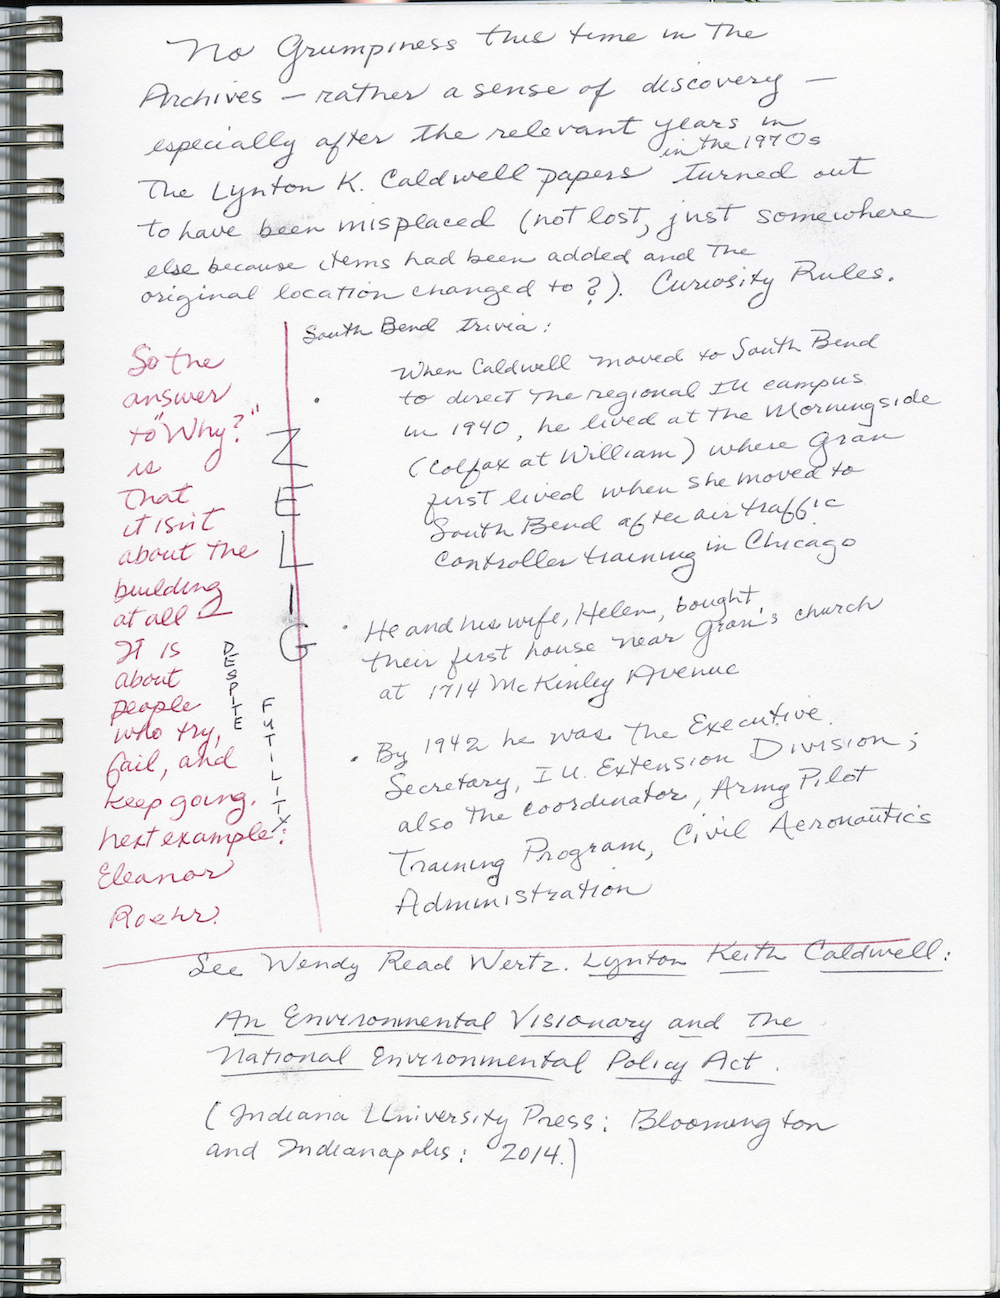 No Grumpiness this time in the
Archives — rather a sense of discovery —
especially after the relevant years in
in the 1970s
The Lynton K. Caldwell papers turned out
to have been misplaced (not lost, just somewhere
else because items had been added and the
original location changed to ?). Curiosity Rules.
South Bend trivia:
• When Caldwell moved to South Bend
to direct the regional IU campus
in 1940, he lived at the Morningside
(Colfax at William) where Gran
first lived when she moved to
South Bend after air traffic
controller training in Chicago
• He and his wife, Helen, bought
their first house near Gran's church
at 1714 McKinley Avenue
• By 1942 he was the Executive
Secretary, I.U. Extension Division;
also the coordinator, Army Pilot
Training Program, Civil Aeronautics
Administration
So the
answer
to "Why?"
is
that
it isn't
about the
building
at all —
It is
about
people
who try,
fail, and
keep going.
Next example:
Eleanor
Roehr.
DESPITE
FUTILITY
ZELIG
See Wendy Read Wertz. Lynton Keith Caldwell:
An Environmental Visionary and the
National Environmental Policy Act.
(Indiana University Press: Bloomington
and Indianapolis: 2014.)